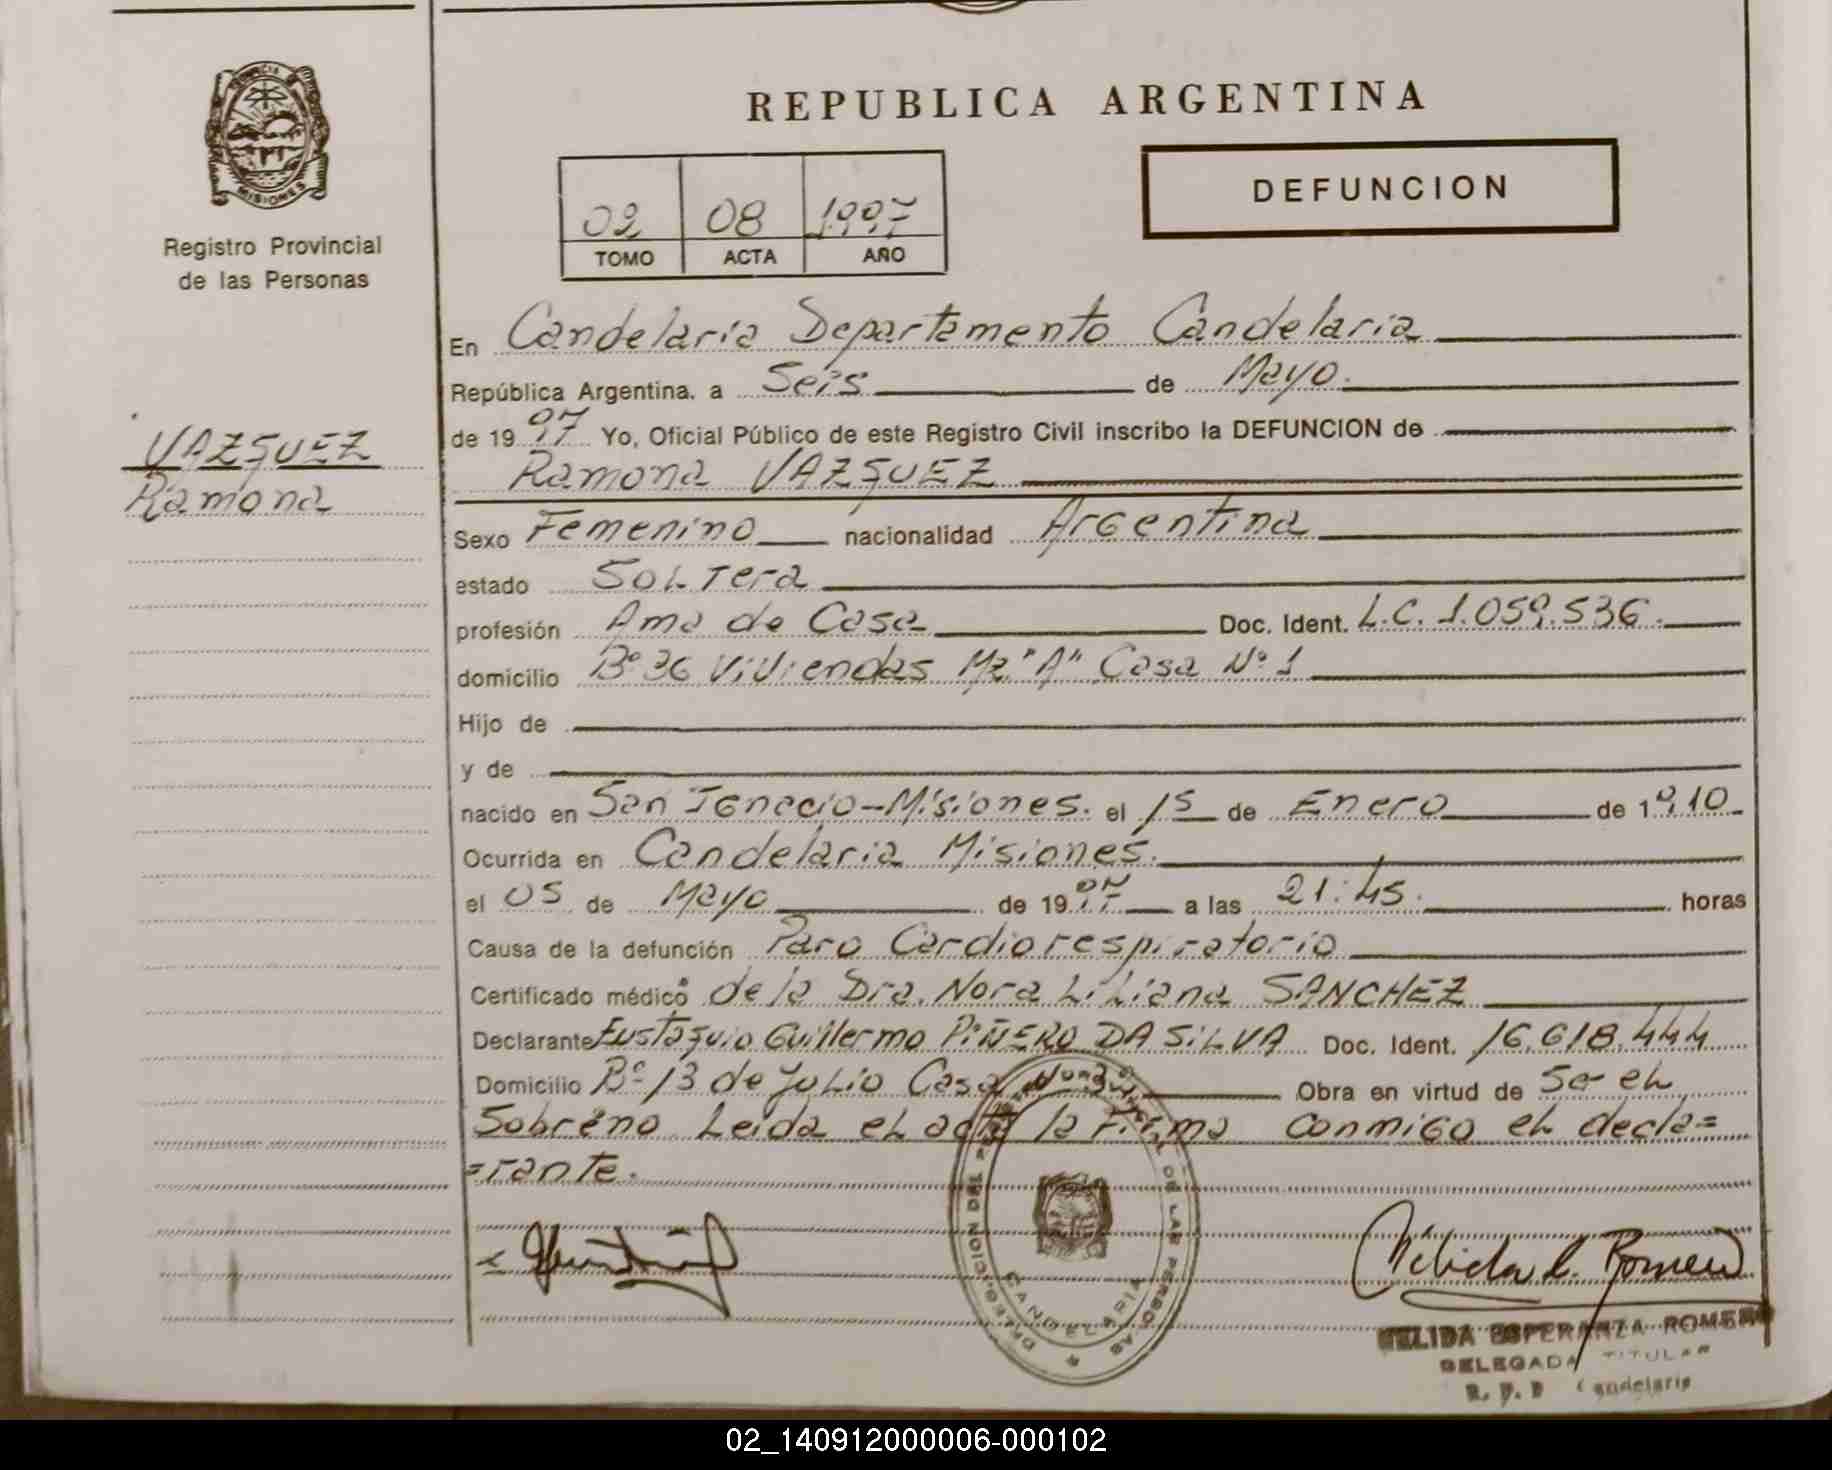 REPUBLICA ARGENTINA
MISIONES
Registro Provincial
de las Personas
DEFUNCION
02 08 1997
TOMO ACTA AÑO
En Candelaria Departamento Candelaria
República Argentina, a Seis de Mayo
de 1997 Yo, Oficial Público de este Registro Civil inscribo la DEFUNCION de
VAZQUEZ
Ramona
Ramona VAZQUEZ
Sexo Femenino nacionalidad Argentina
estado Soltera
profesión Ama de Casa Doc. Ident. L.C. 1.059.536.
domicilio B° 36 Viviendas Mz "A" Casa N° 1
Hijo de
y de
nacido en San Ignacio-Misiones. el 15 de Enero de 1910
Ocurrida en Candelaria Misiones.
el 05 de Mayo de 1997 a las 21:45. horas
Causa de la defunción Paro Cardiorespiratorio
Certificado médico de la Dra. Nora Liliana SANCHEZ
Declarante Eustaquio Guillermo PIÑERO DA SILVA Doc. Ident. 16.618.444
Domicilio B° 13 de Julio Casa Obra en virtud de Ser el
Sobreno Leida el acta la Firma conmigo el decla=
=rante.
Nélida E. Romero
NELIDA ESPERANZA ROMERO
DELEGADA TITULAR
Candelaria
CANDELARIA
02_140912000006-000102